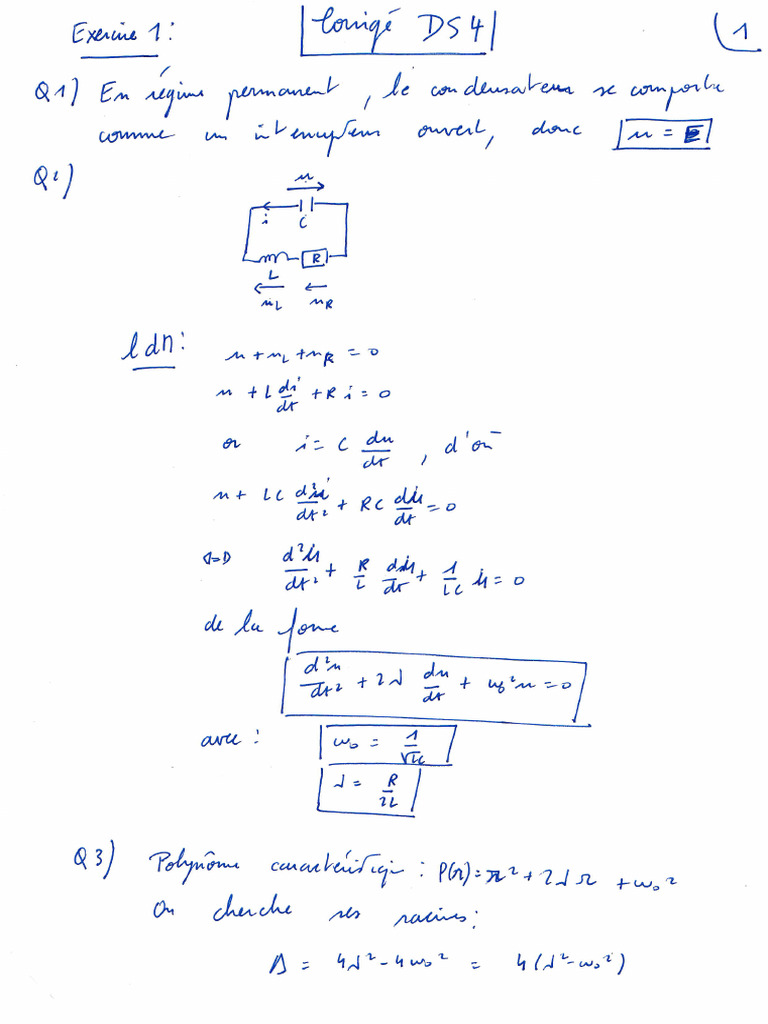 Exercice 1 :
Corrigé DS4
1
Q1) En régime permanent, le condensateur se comporte
comme un interrupteur ouvert, donc u = E
Q2)
u
i C
L R
u_L u_R
ldM :
u + u_L + u_R = 0
u + L di/dt + R i = 0
or i = C du/dt , d'où
u + LC d²u/dt² + RC du/dt = 0
⟺ d²u/dt² + R/L du/dt + 1/LC u = 0
de la forme
d²u/dt² + 2λ du/dt + ω₀² u = 0
avec : ω₀ = 1/√LC
λ = R/2L
Q3) Polynôme caractéristique : P(r) = r² + 2λ r + ω₀²
On cherche ses racines :
Δ = 4λ² - 4ω₀² = 4(λ² - ω₀²)